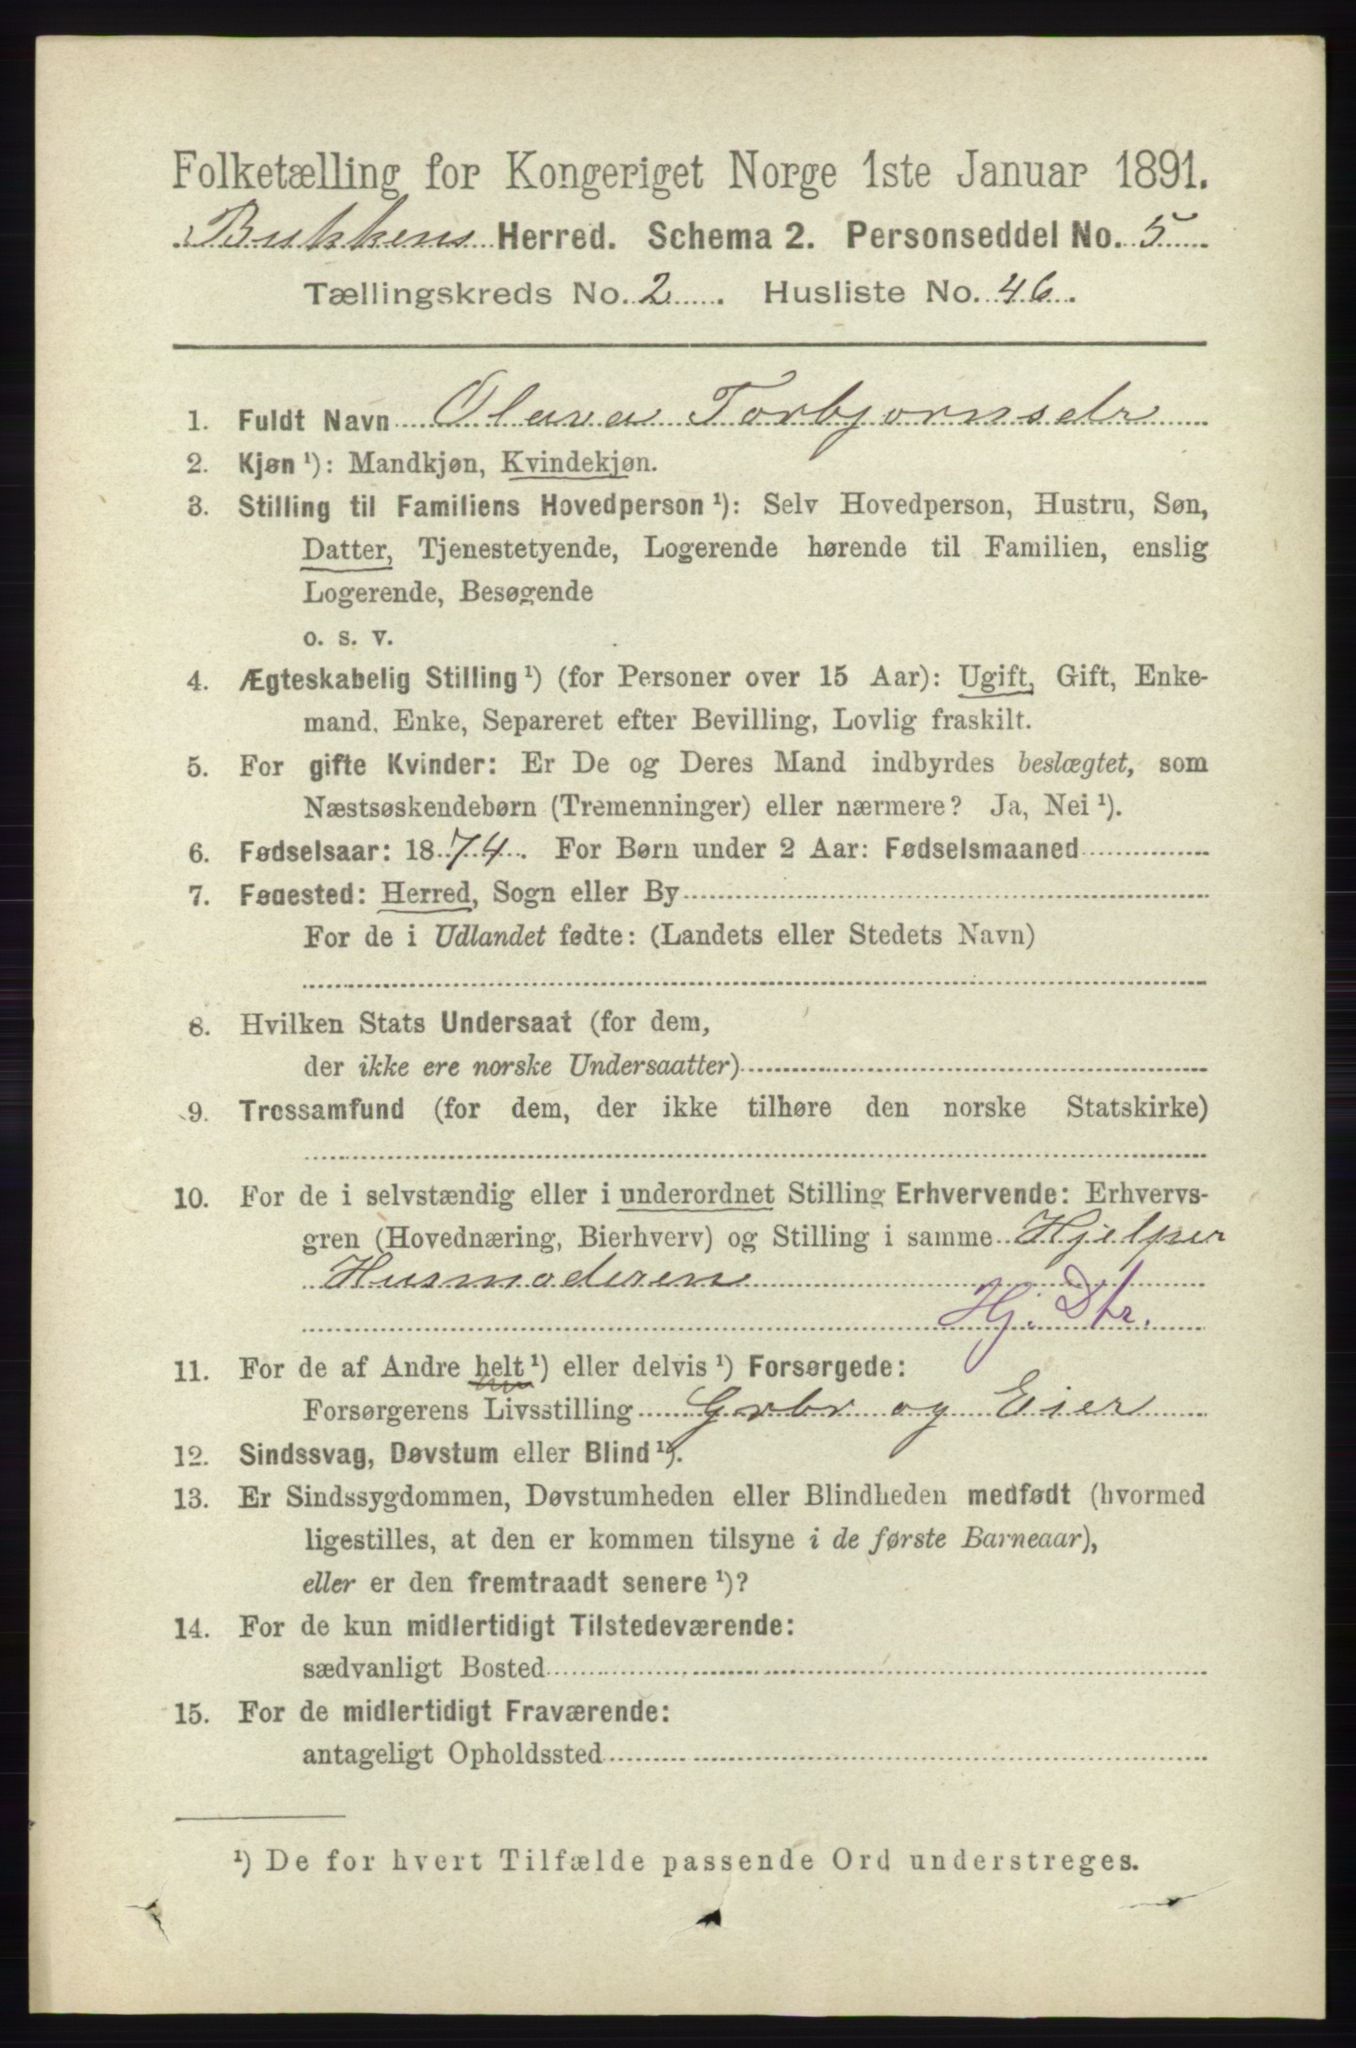 Folketælling for Kongeriget Norge 1ste Januar 1891.
Bukkens Herred. Schema 2. Personseddel No. 5
Tællingskreds No. 2. Husliste No. 46.
1. Fuldt Navn Olava Torbjornsdr
2. Kjøn ¹): Mandkjøn, Kvindekjøn.
3. Stilling til Familiens Hovedperson ¹): Selv Hovedperson, Hustru, Søn,
Datter, Tjenestetyende, Logerende hørende til Familien, enslig
Logerende, Besøgende
o. s. v.
4. Ægteskabelig Stilling ¹) (for Personer over 15 Aar): Ugift, Gift, Enke-
mand, Enke, Separeret efter Bevilling, Lovlig fraskilt.
5. For gifte Kvinder: Er De og Deres Mand indbyrdes beslægtet, som
Næstsøskendebørn (Tremenninger) eller nærmere? Ja, Nei ¹).
6. Fødselsaar: 1874. For Børn under 2 Aar: Fødselsmaaned
7. Fødested: Herred, Sogn eller By
For de i Udlandet fødte: (Landets eller Stedets Navn)
8. Hvilken Stats Undersaat (for dem,
der ikke ere norske Undersaatter)
9. Trossamfund (for dem, der ikke tilhøre den norske Statskirke)
10. For de i selvstændig eller i underordnet Stilling Erhvervende: Erhvervs-
gren (Hovednæring, Bierhverv) og Stilling i samme Hjelper
Husmoderen
Hj. Dtr.
11. For de af Andre helt ¹) eller delvis ¹) Forsørgede:
Forsørgerens Livsstilling Grbr og Eier
12. Sindssvag, Døvstum eller Blind ¹).
13. Er Sindssygdommen, Døvstumheden eller Blindheden medfødt (hvormed
ligestilles, at den er kommen tilsyne i de første Barneaar),
eller er den fremtraadt senere ¹)?
14. For de kun midlertidigt Tilstedeværende:
sædvanligt Bosted
15. For de midlertidigt Fraværende:
antageligt Opholdssted
¹) De for hvert Tilfælde passende Ord understreges.